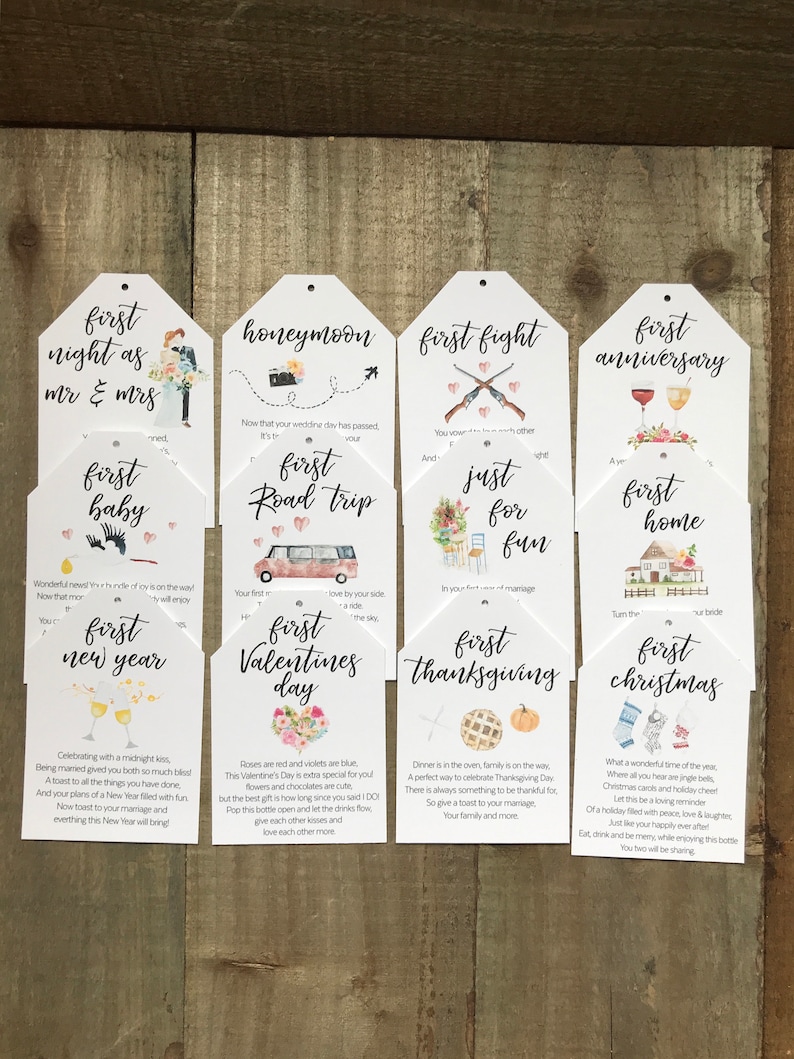 first
night as
mr & mrs
honeymoon
Now that your wedding day has passed,
first fight
You vowed to love each other
first
anniversary
first
baby
Wonderful news! Your bundle of joy is on the way!
first
Road trip
just
for
fun
In your first year of marriage
first
home
first
new year
Celebrating with a midnight kiss,
Being married gived you both so much bliss!
A toast to all the things you have done,
And your plans of a New Year filled with fun.
Now toast to your marriage and
everthing this New Year will bring!
first
Valentines
day
Roses are red and violets are blue,
This Valentine's Day is extra special for you!
flowers and chocolates are cute,
but the best gift is how long since you said I DO!
Pop this bottle open and let the drinks flow,
give each other kisses and
love each other more.
first
thanksgiving
Dinner is in the oven, family is on the way,
A perfect way to celebrate Thanksgiving Day.
There is always something to be thankful for,
So give a toast to your marriage,
Your family and more.
first
christmas
What a wonderful time of the year,
Where all you hear are jingle bells,
Christmas carols and holiday cheer!
Let this be a loving reminder
Of a holiday filled with peace, love & laughter,
Just like your happily ever after!
Eat, drink and be merry, while enjoying this bottle
You two will be sharing.